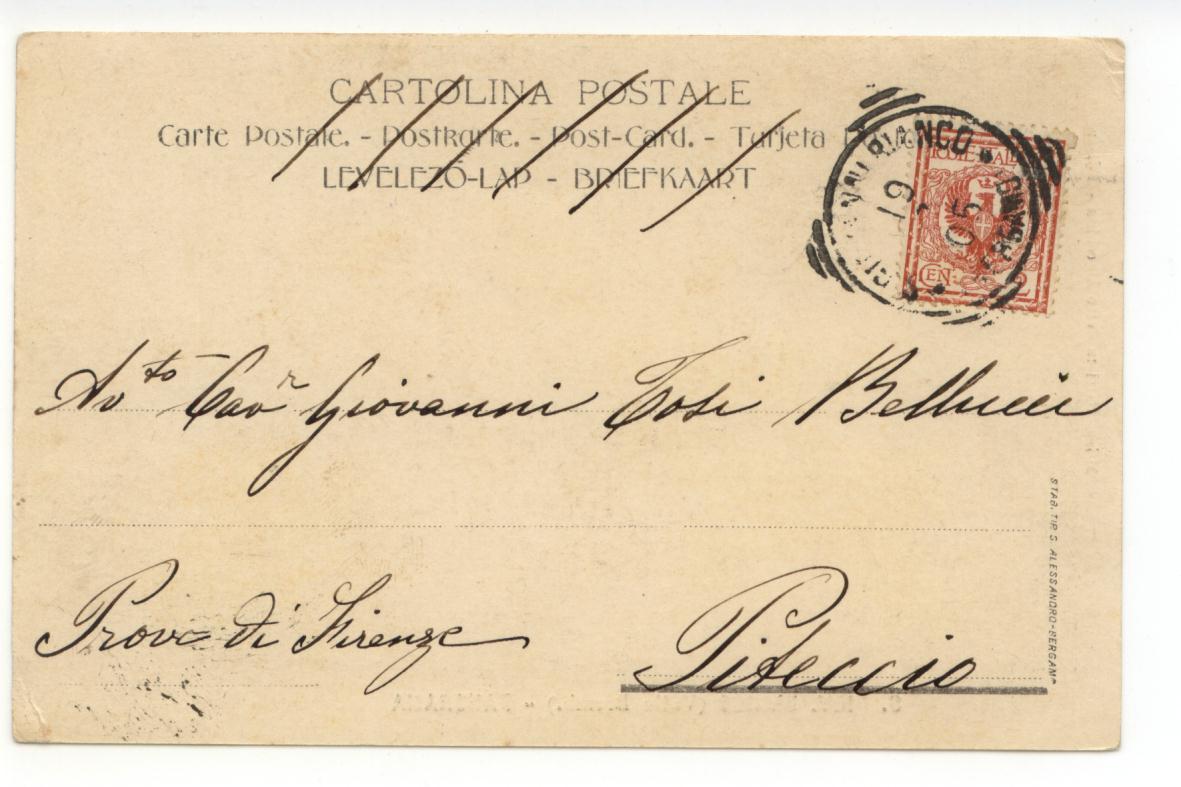 CARTOLINA POSTALE
Carte Postale. - Postkarte. - Post-Card. - Tarjeta
LEVELEZÖ-LAP - BRIEFKAART
BIANCO
19
05
BERGAMO
CEN 2
Av.to Cav.r Giovanni Tosi Bellucci
Prov. di Firenze
Piteccio
STAB. TIP. S. ALESSANDRO-BERGAMO